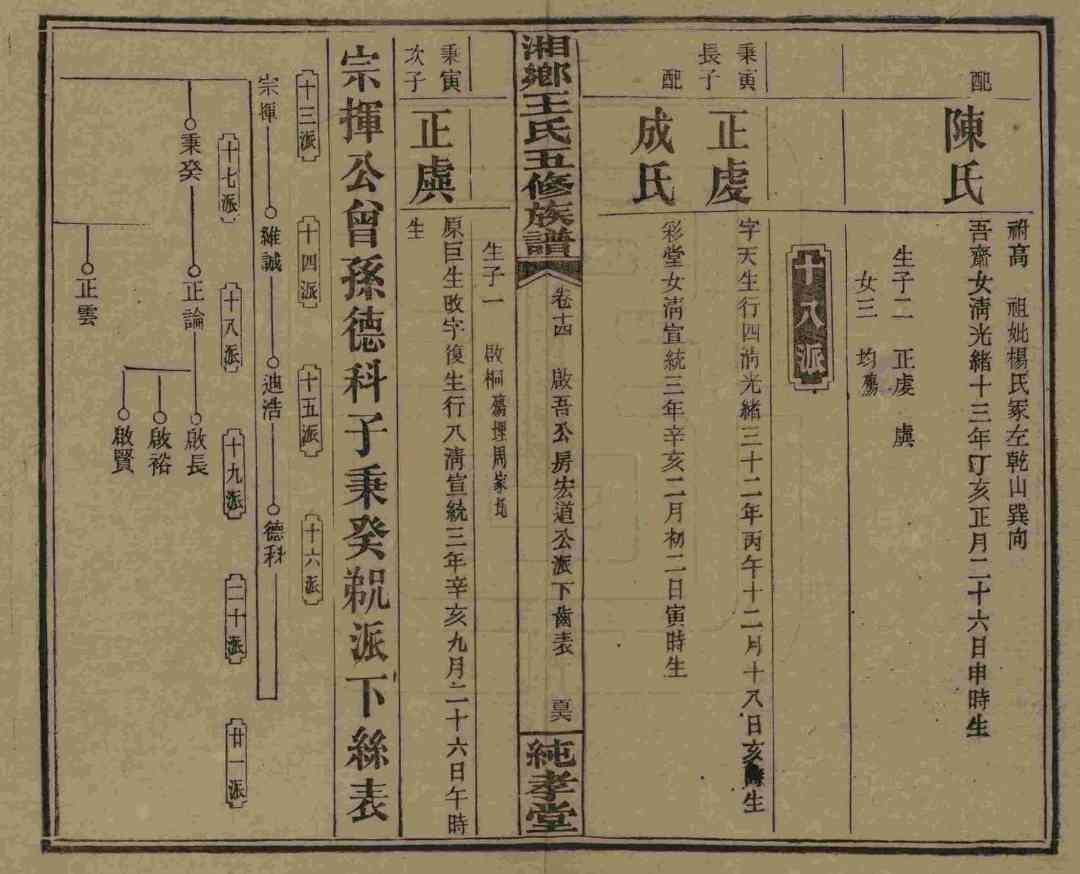 祔高　祖妣楊氏冢左乾山巽向
配
陳氏
吾齋女清光緒十三年丁亥正月二十六日申時生
生子二　正虔　虞
女三　均殤
十八派
秉寅
長子
正虔
字天生行四清光緒三十二年丙午十二月十八日亥時生
配
成氏
彩堂女清宣統三年辛亥二月初二日寅時生
湘鄉王氏五修族譜
卷十四　啟吾公房宏道公派下齒表
純孝堂
生子一　啟桐殤埋周家
秉寅
次子
正虞
原巨生改字復生行八清宣統三年辛亥九月二十六日午時
生
宗揮公曾孫德科子秉癸派下絲表
十三派
十四派
十五派
十六派
宗揮
維誠
迪浩
德科
十七派
十八派
十九派
二十派
廿一派
秉癸
正論
啟長
啟裕
啟賢
正雲